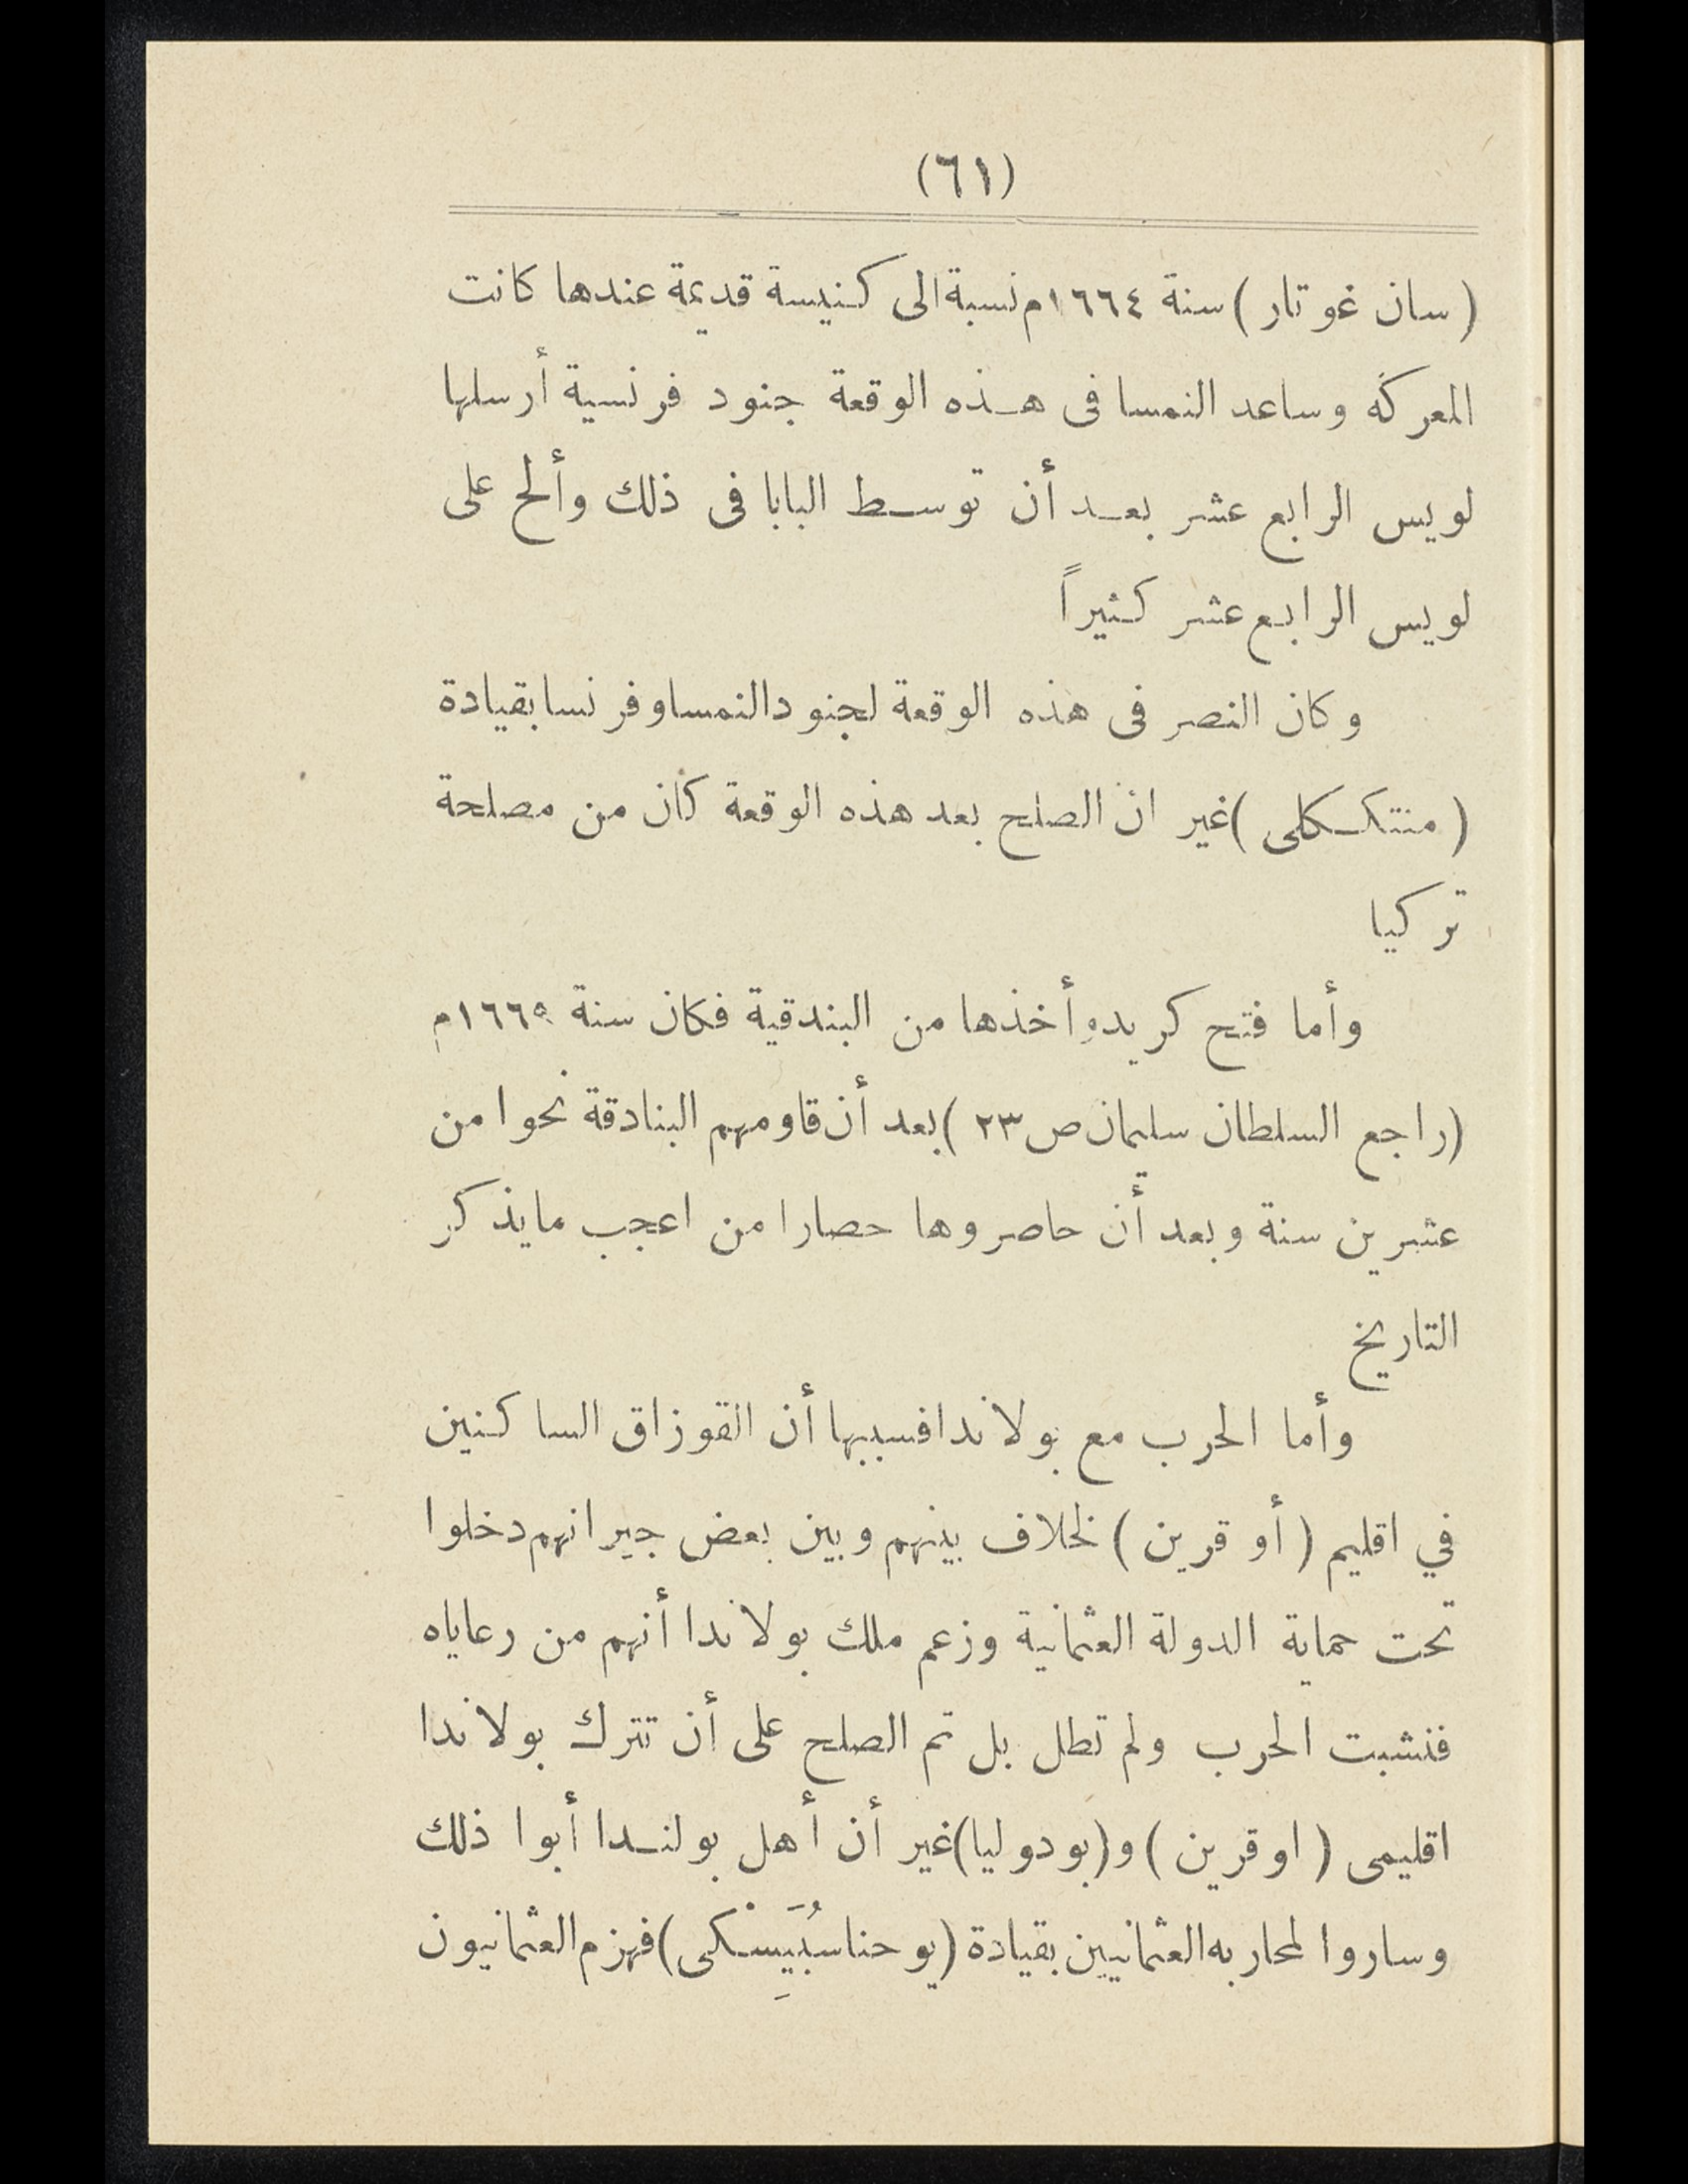 (٦١)
(سان غوتار) سنة ١٦٦٤م نسبة الى كنيسة قديمة عندها كانت
المعركة وساعد النمسا فى هذه الوقعة جنود فرنسية أرسلها
لويس الرابع عشر بعد أن توسط البابا فى ذلك وألح على
لويس الرابع عشر كثيراً
وكان النصر فى هذه الوقعة لجنود النمسا وفرنسا بقيادة
(منتككلى) غير ان الصلح بعد هذه الوقعة كان من مصلحة
تركيا
وأما فتح كريد وأخذها من البندقية فكان سنة ١٦٦٩م
(راجع السلطان سليمان ص ٢٣) بعد أن قاومهم البنادقة نحوا من
عشرين سنة وبعد أن حاصروها حصارا من اعجب مايذكر
التاريخ
وأما الحرب مع بولاندا فسببها أن القوزاق الساكنين
في اقليم (أوقرين) لخلاف بينهم وبين بعض جيرانهم دخلوا
تحت حماية الدولة العثمانية وزعم ملك بولاندا أنهم من رعاياه
فنشبت الحرب ولم تطل بل تم الصلح على أن تترك بولاندا
اقليمى (اوقرين) و(بودوليا) غير أن أهل بولندا أبوا ذلك
وساروا لمحاربه العثمانيين بقيادة (يوحنا سُبَيِسْكى) فهزم العثمانيون